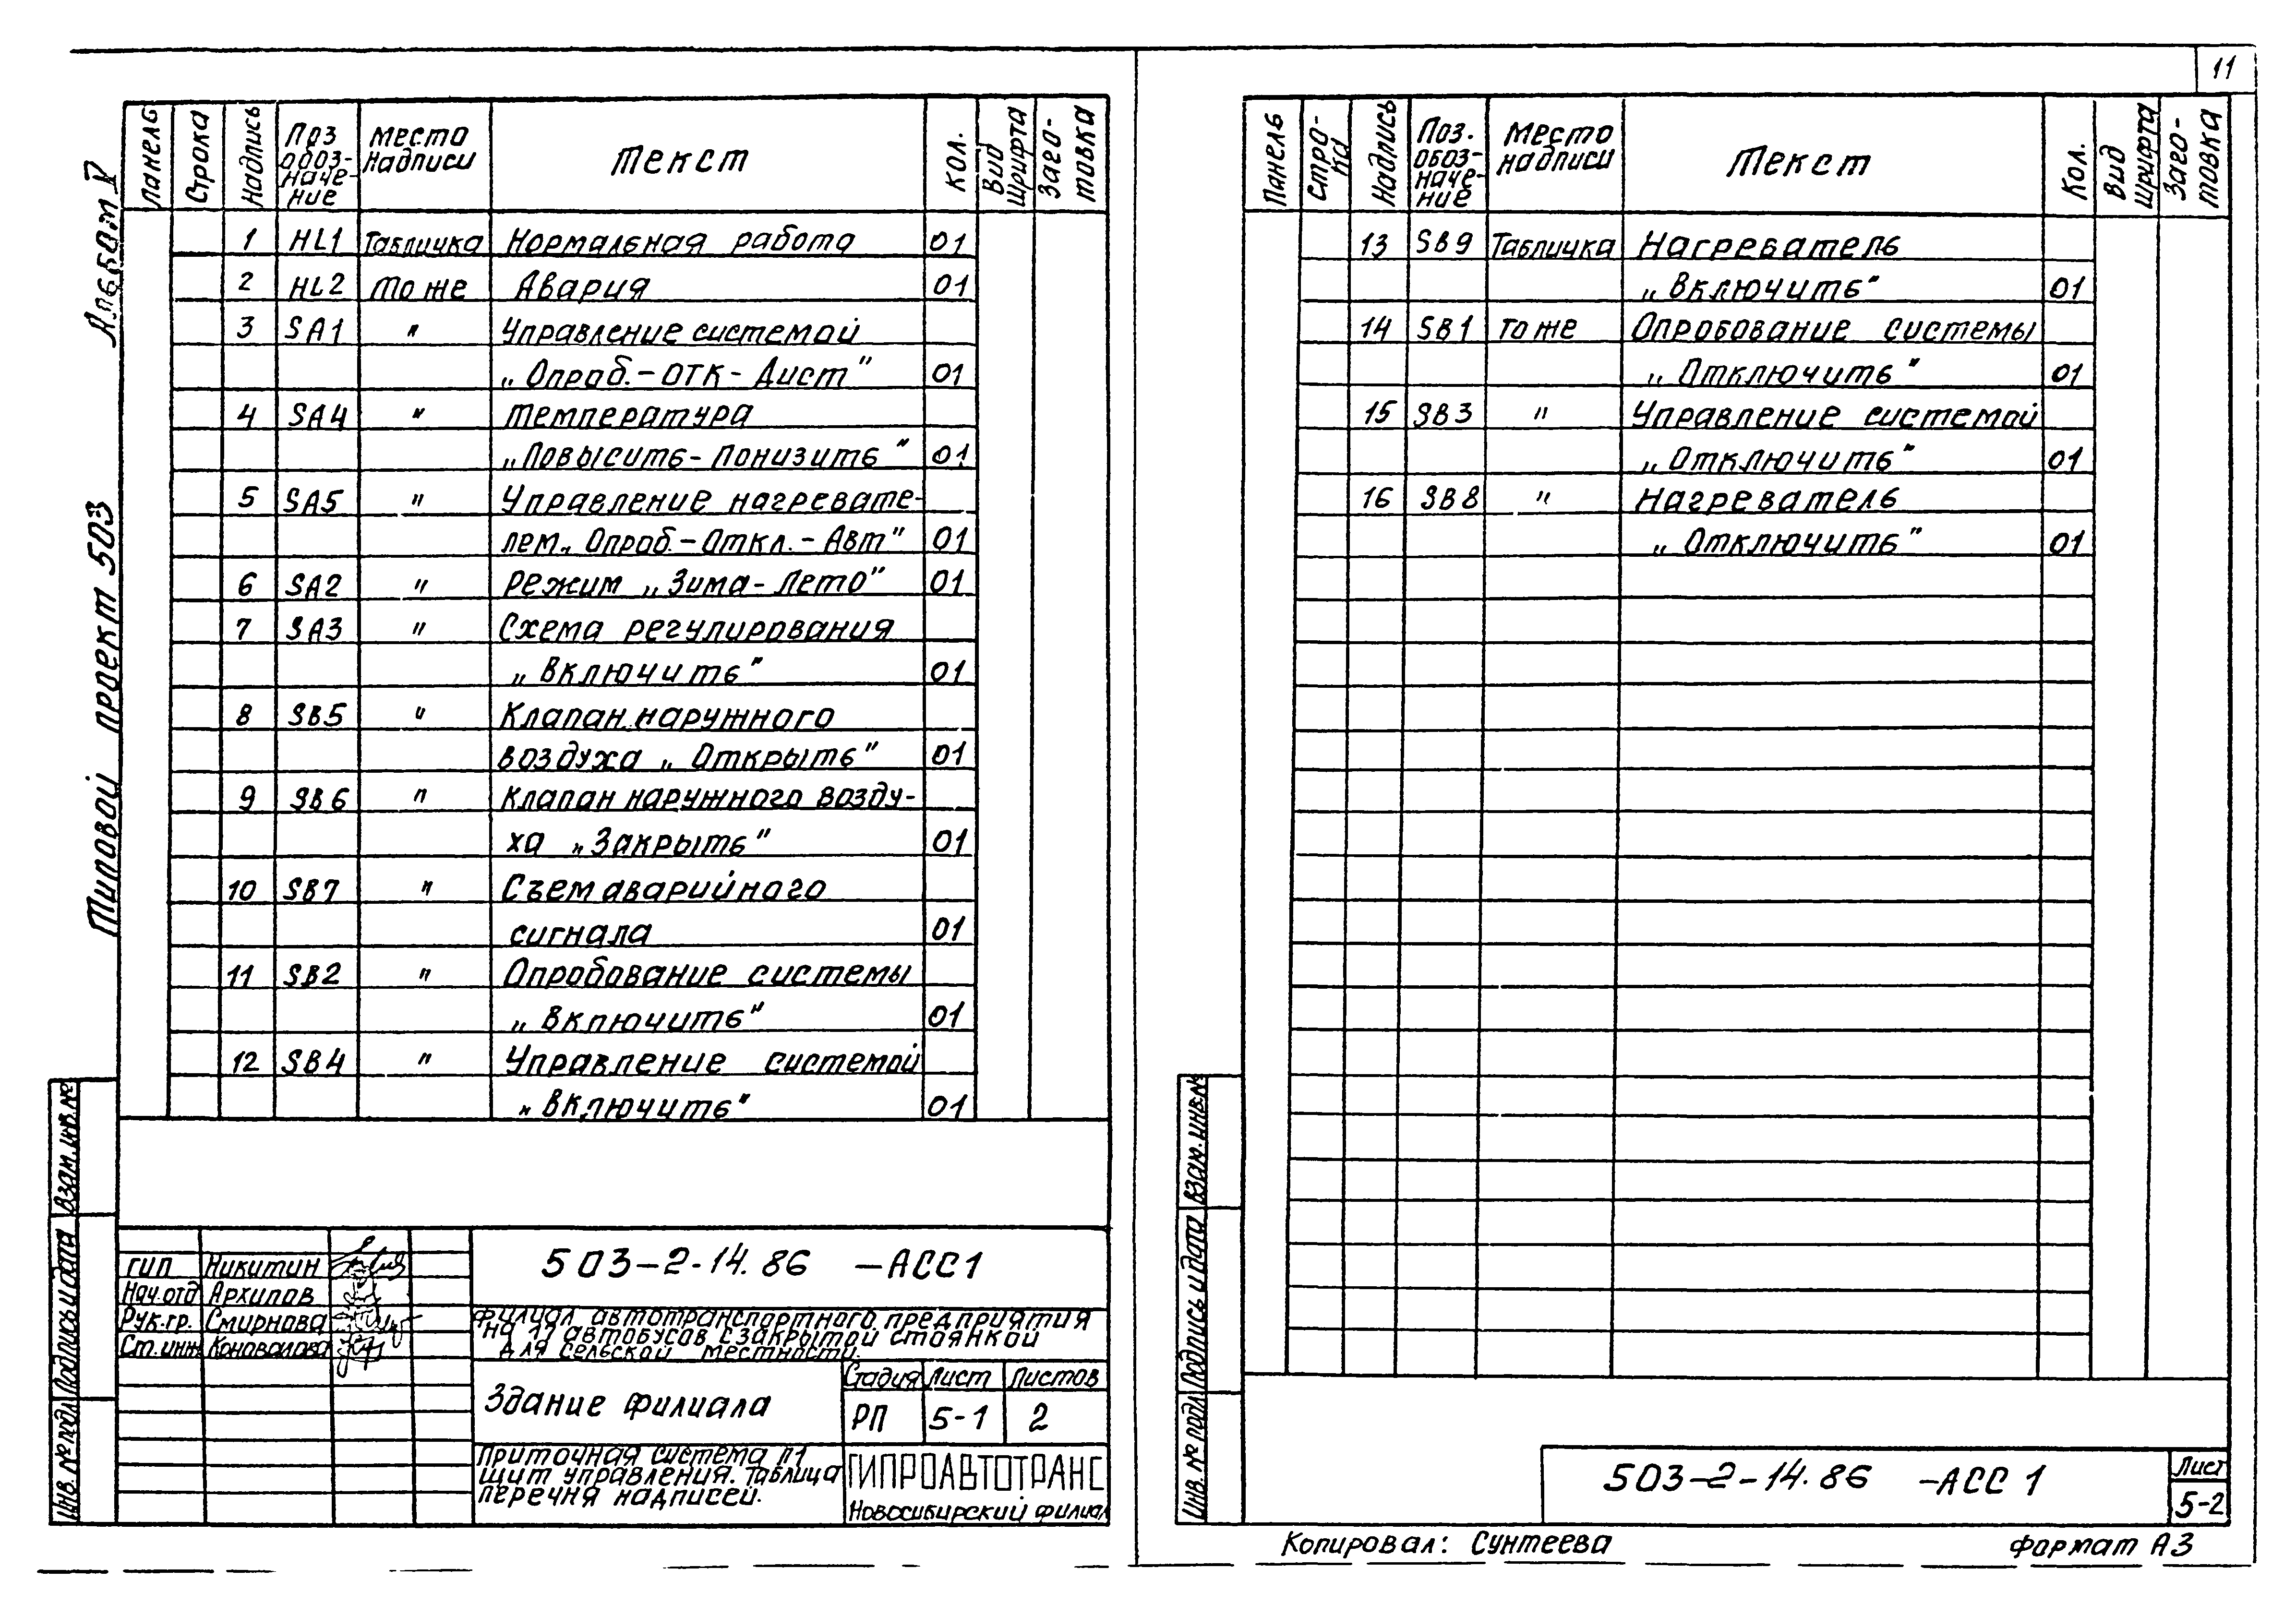 11
Альбом V
Типовой проект 503
Панель Строка Надпись Поз обоз-наче-ние Место надписи Текст Кол. Вид шрифта Заго-товка
1 HL1 Табличка Нормальная работа 01
2 HL2 То же Авария 01
3 SA1 " Управление системой
„Опроб.-отк-Дист" 01
4 SA4 " Температура
„Повысить-Понизить" 01
5 SA5 " Управление нагревате-
лем „Опроб.-Откл.-Авт" 01
6 SA2 " Режим „Зима-Лето" 01
7 SA3 " Схема регулирования
„Включить" 01
8 SB5 " Клапан наружного
воздуха „Открыть" 01
9 SB6 " Клапан наружного возду-
ха „Закрыть" 01
10 SB7 " Съем аварийного
сигнала 01
11 SB2 " Опробование системы
„Включить" 01
12 SB4 " Управление системой
„Включить" 01
Взам. инв.№
Подпись и дата
Инв. № подл
ГИП Никитин
Нач.отд Архипов
Рук.гр. Смирнова
Ст.инж Коновалова
503-2-14.86 -АСС1
Филиал автотранспортного предприятия
на 17 автобусов с закрытой стоянкой
для сельской местности.
Здание филиала
Стадия Лист Листов
РП 5-1 2
Приточная система П1
щит управления. Таблица
перечня надписей.
ГИПРОАВТОТРАНС
Новосибирский филиал
Панель Стро-ка Надпись Поз. обоз-наче-ние Место надписи Текст Кол. Вид шрифта Заго-товка
13 SB9 Табличка Нагреватель
„Включить" 01
14 SB1 То же Опробование системы
„Отключить" 01
15 SB3 " Управление системой
„Отключить" 01
16 SB8 " Нагреватель
„Отключить" 01
Взам. инв.№
Подпись и дата
Инв. № подл
503-2-14.86 -АСС 1
Лист
5-2
Копировал: Сунтеева Формат А3